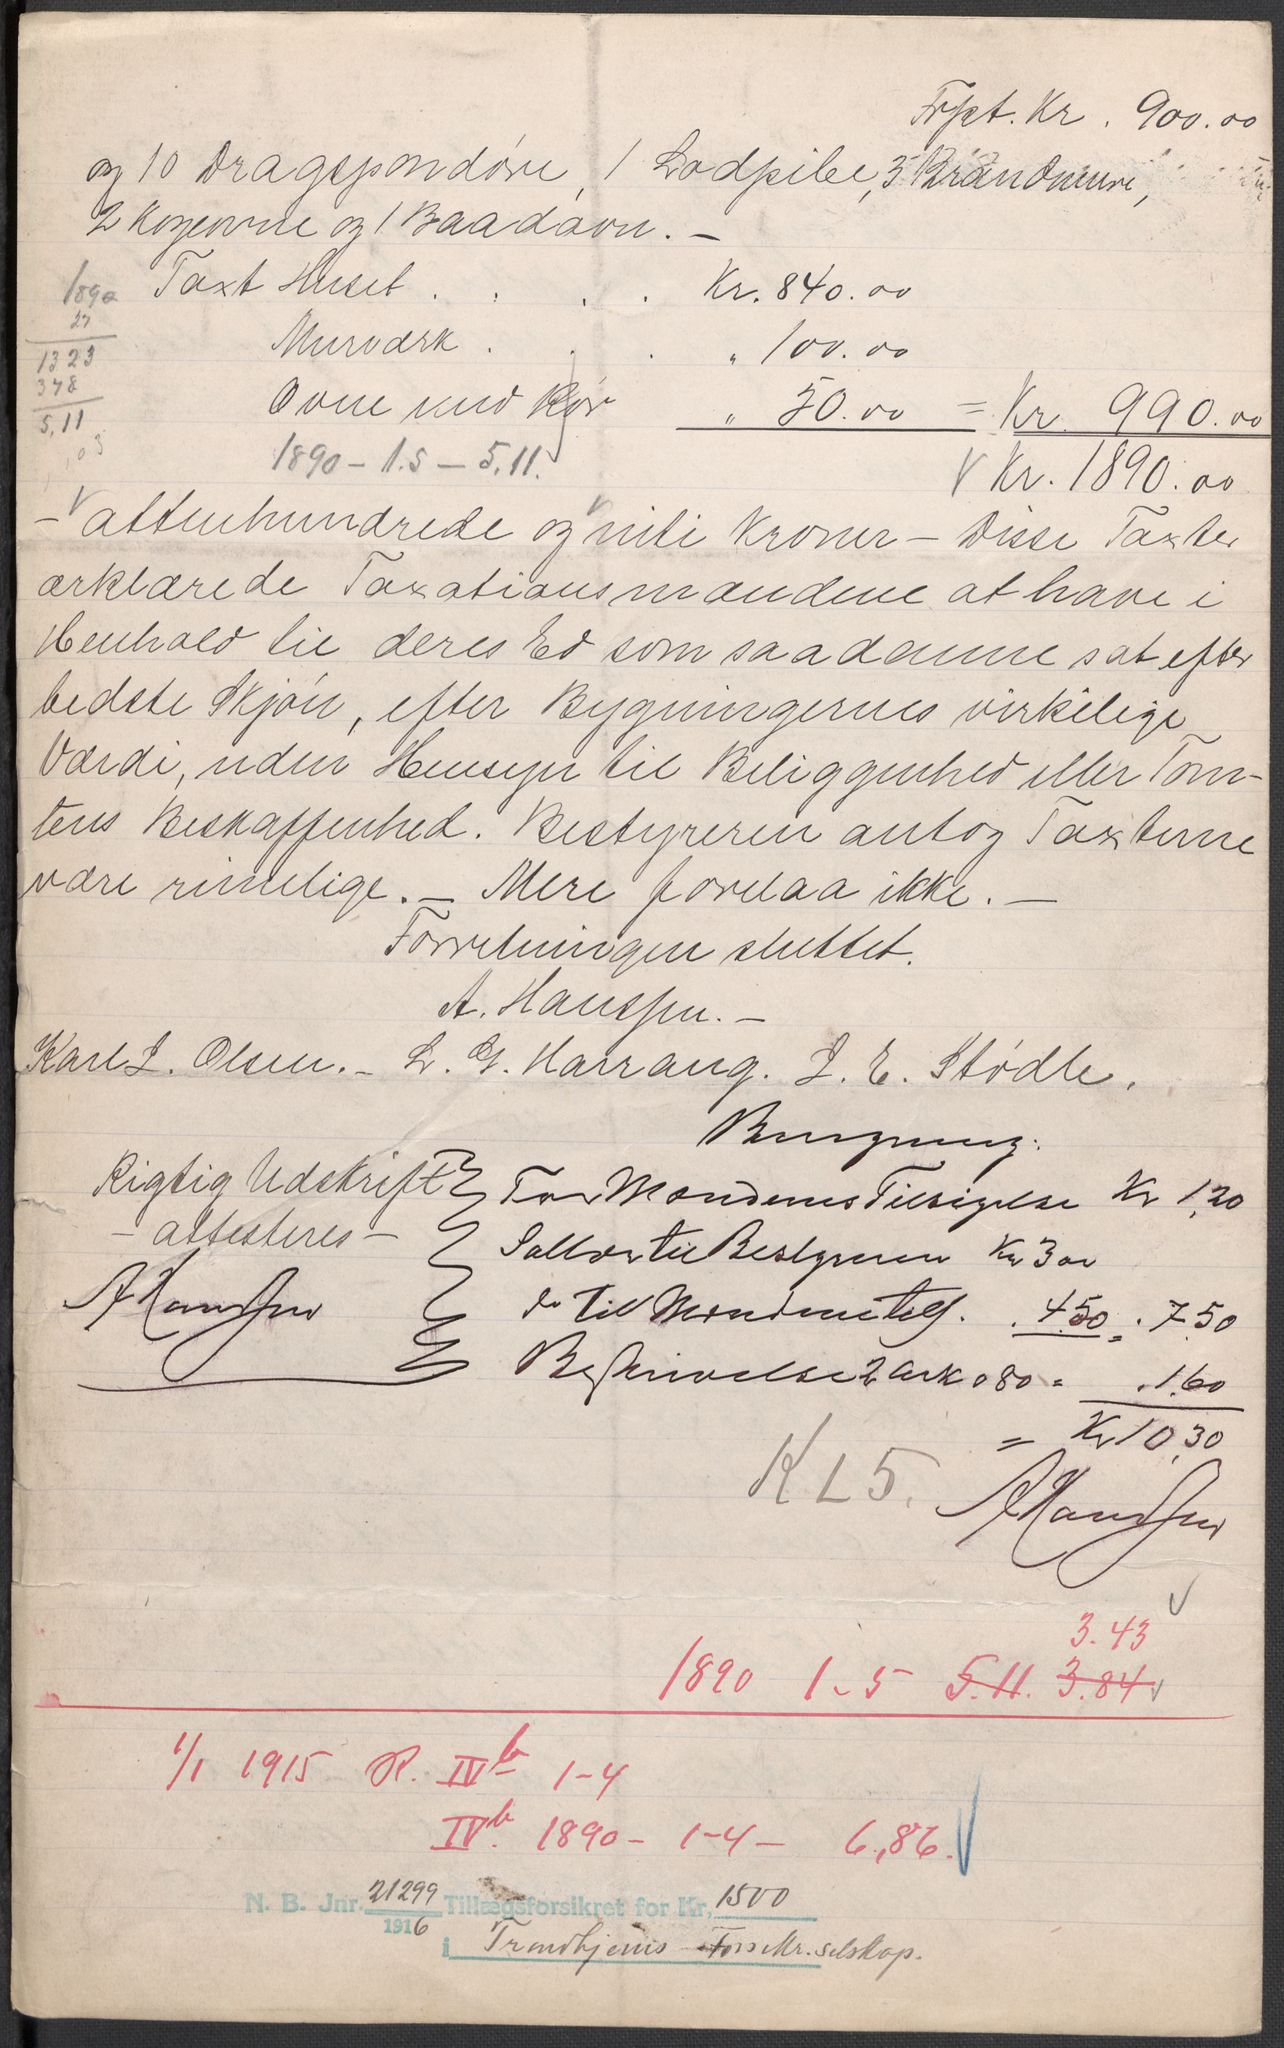 Frpt. Kr. 900.00
og 10 Dragspondøre, 1 Lodpibe, 3 Brandmure,
2 Kogeovne og 1 Baadovn. –
Taxt Huset . . . . Kr. 840.00
1890
27
Murværk . . . „ 100.00
1323
378
Ovne med Rør „ 50.00 = Kr. 990.00
5,11
1890 – 1.5 – 5.11.
V Kr. 1890.00
– attenhundrede og niti Kroner – Disse Taxter
erklærede Taxationsmændene at have i
Henhold til deres Ed som saadanne sat efter
bedste Skjøn, efter Bygningernes virkelige
Værdi, uden Hensyn til Beliggenhed eller Tom-
tens Beskaffenhed. Bestyreren antog Taxterne
være rimelige. – Mere forelaa ikke. –
Forretningen sluttet.
A. Hanssen. –
Karl L. Olsen. – L. G. Harrang. L. E. Stødle.
Beregning:
Rigtig Udskrift
– attesteres –
AHanssen
For Mændenes Tilsigelse Kr 1,20
Sallær til Bestyreren Kr 3 00
do til Mændene tils. . 4.50 = . 7.50
Beskrivelse 2 Ark a 80 = . 1.60
= Kr 10,30
K L 5.
AHanssen
3.43
1890 1-5 5.11. 3.84
1/1 1915 R. IVb 1-4
IVb. 1890 – 1-4 – 6,86.
N. B. Jnr. 21299 Tillægsforsikret for Kr. 1500
1916
i Trondhjems Forsikr. selskap.